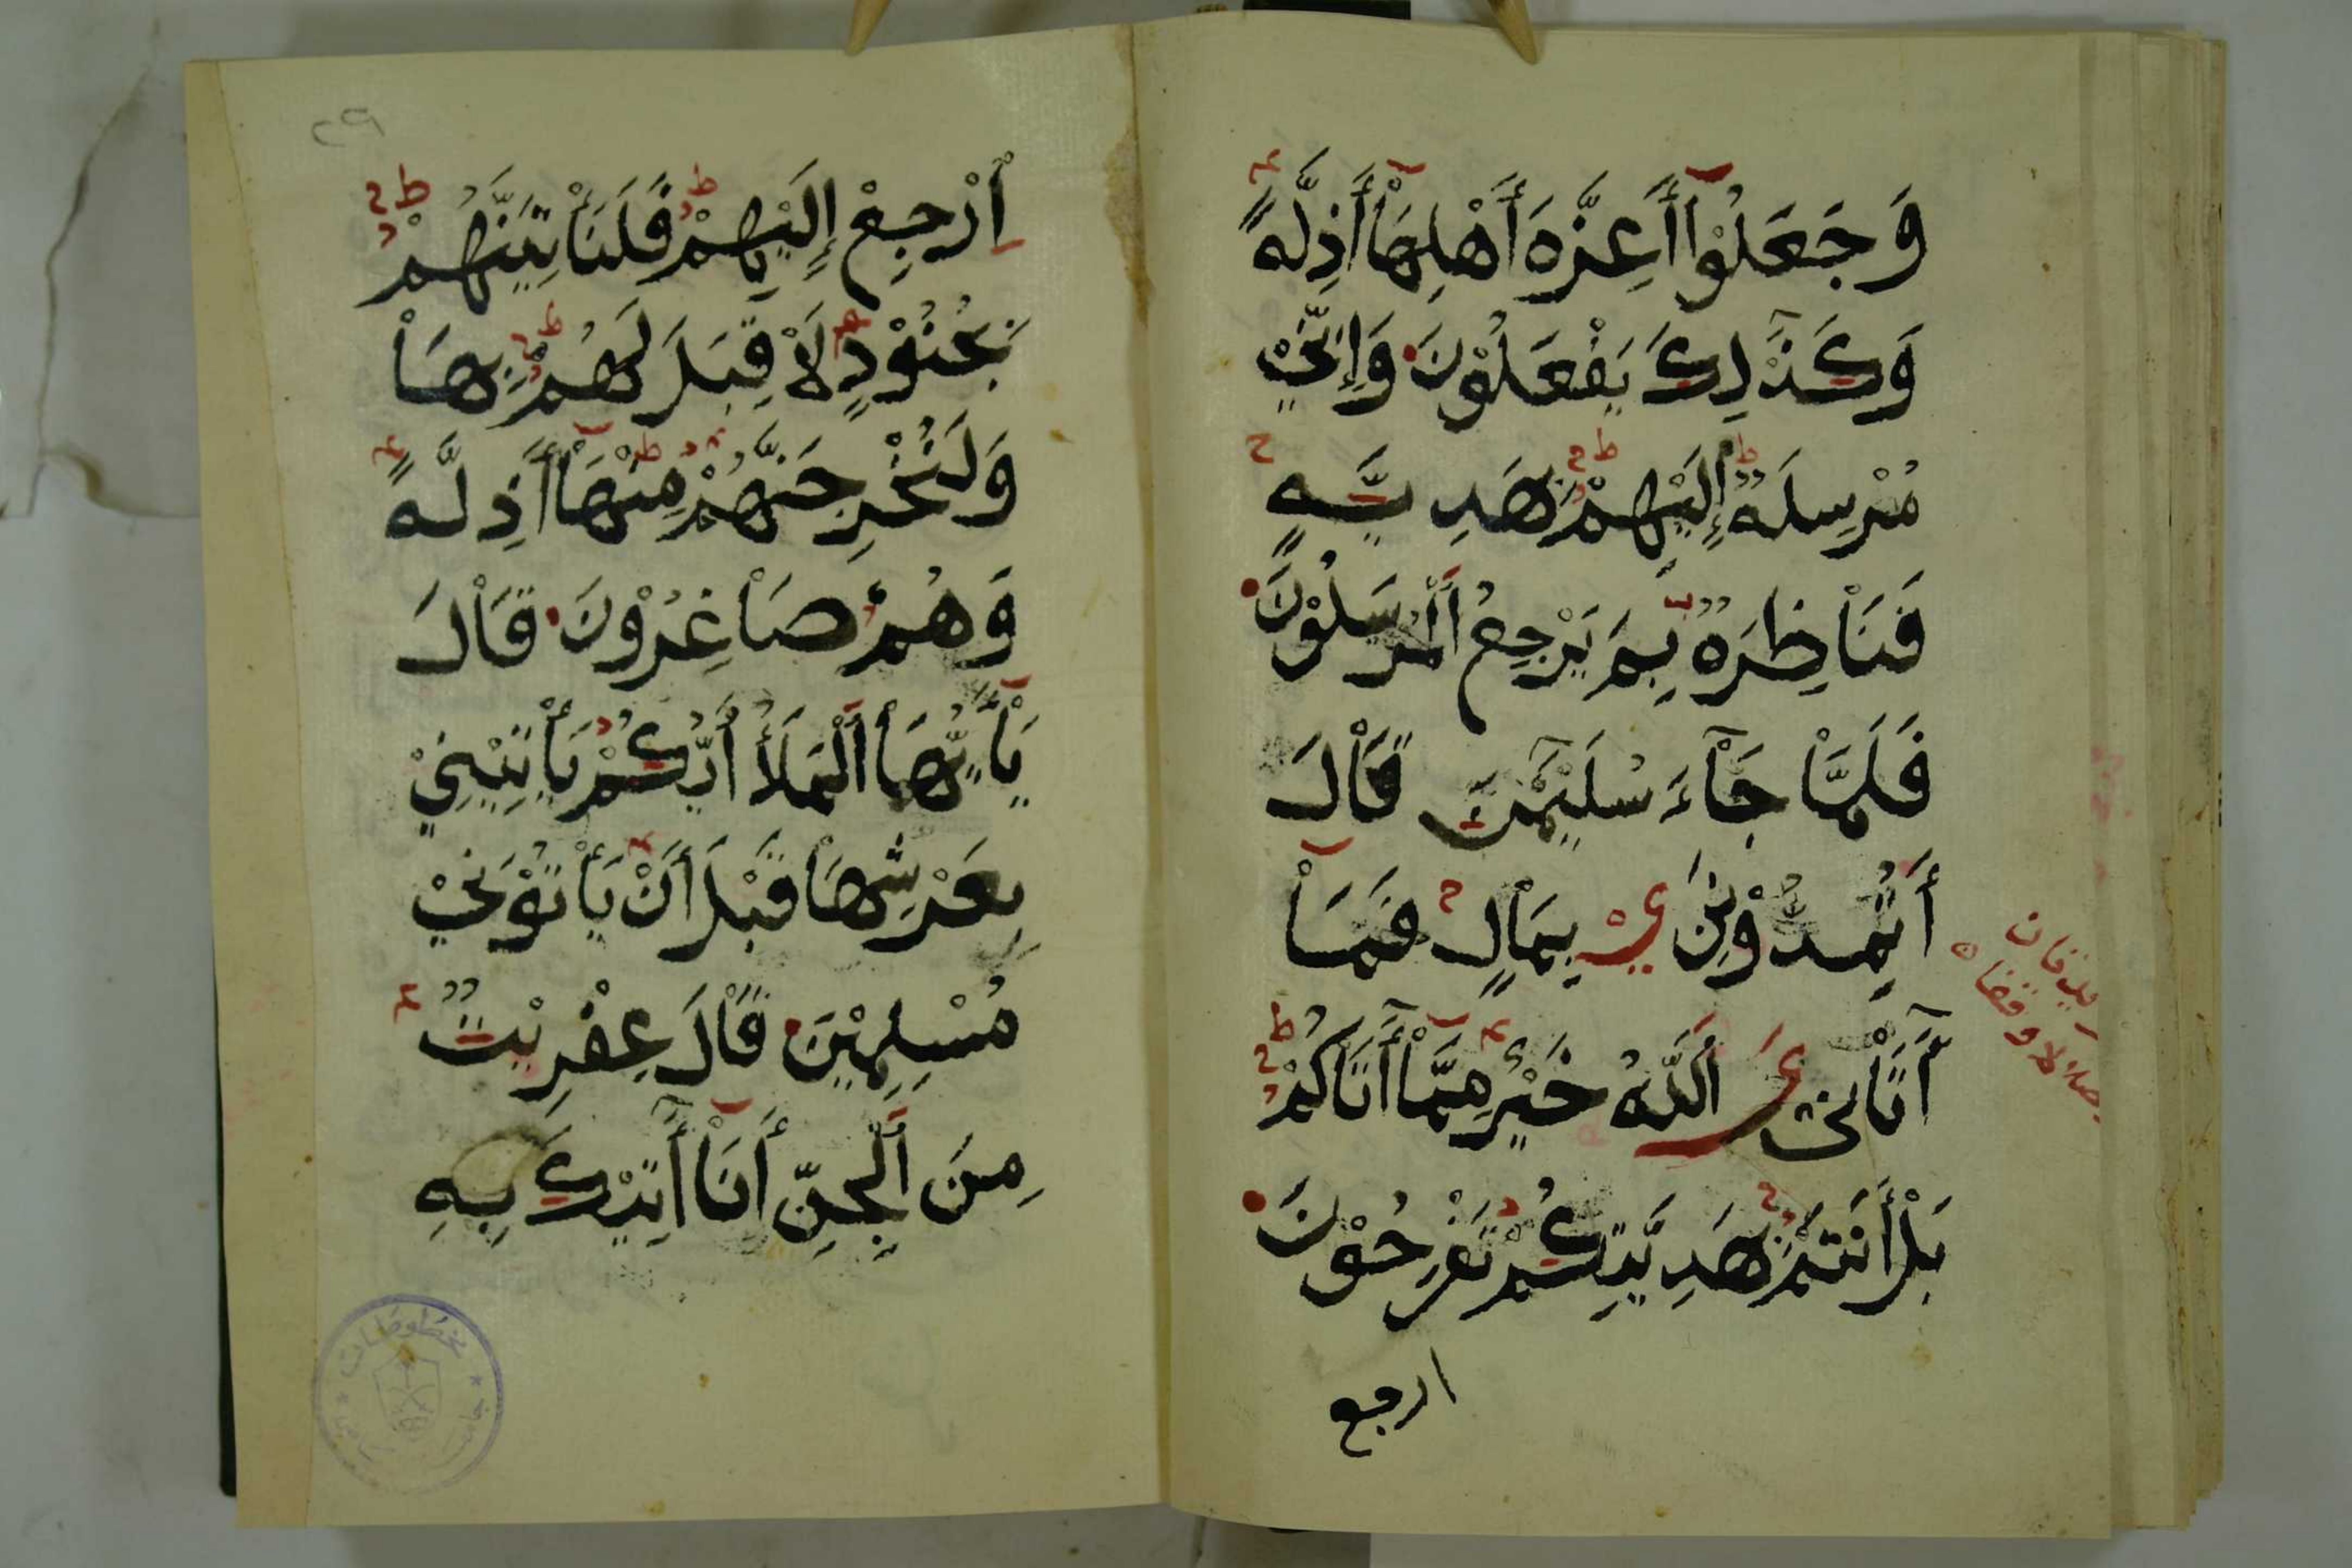 وَجَعَلُوْآ أَعِزَّةَ أَهْلِهَآ أَذِلَّةً
وَكَذَٰلِكَ يَفْعَلُوْنَ وَإِنِّيْ
مُرْسِلَةٌ إِلَيْهِمْ بِهَدِيَّةٍ
فَنَاظِرَةٌ بِمَ يَرْجِعُ الْمُرْسَلُوْنَ
فَلَمَّا جَآءَ سُلَيْمَٰنَ قَالَ
أَتُمِدُّوْنَنِيْ بِمَالٍ فَمَآ
أٰتَانِيَ اللّٰهُ خَيْرٌ مِمَّآ أٰتَاكُمْ
بَلْ أَنْتُمْ بِهَدِيَّتِكُمْ تَفْرَحُوْنَ
ارجع
٢٩
اِرْجِعْ إِلَيْهِمْ فَلَنَأْتِيَنَّهُمْ
بِجُنُوْدٍ لَا قِبَلَ لَهُمْ بِهَا
وَلَنُخْرِجَنَّهُمْ مِنْهَآ أَذِلَّةً
وَهُمْ صَاغِرُوْنَ قَالَ
يَآأَيُّهَا الْمَلَأُ أَيُّكُمْ يَأْتِيْنِيْ
بِعَرْشِهَا قَبْلَ أَنْ يَأْتُوْنِيْ
مُسْلِمِيْنَ قَالَ عِفْرِيْتٌ
مِنَ الْجِنِّ أَنَآ أٰتِيْكَ بِهِ
مخطوطات